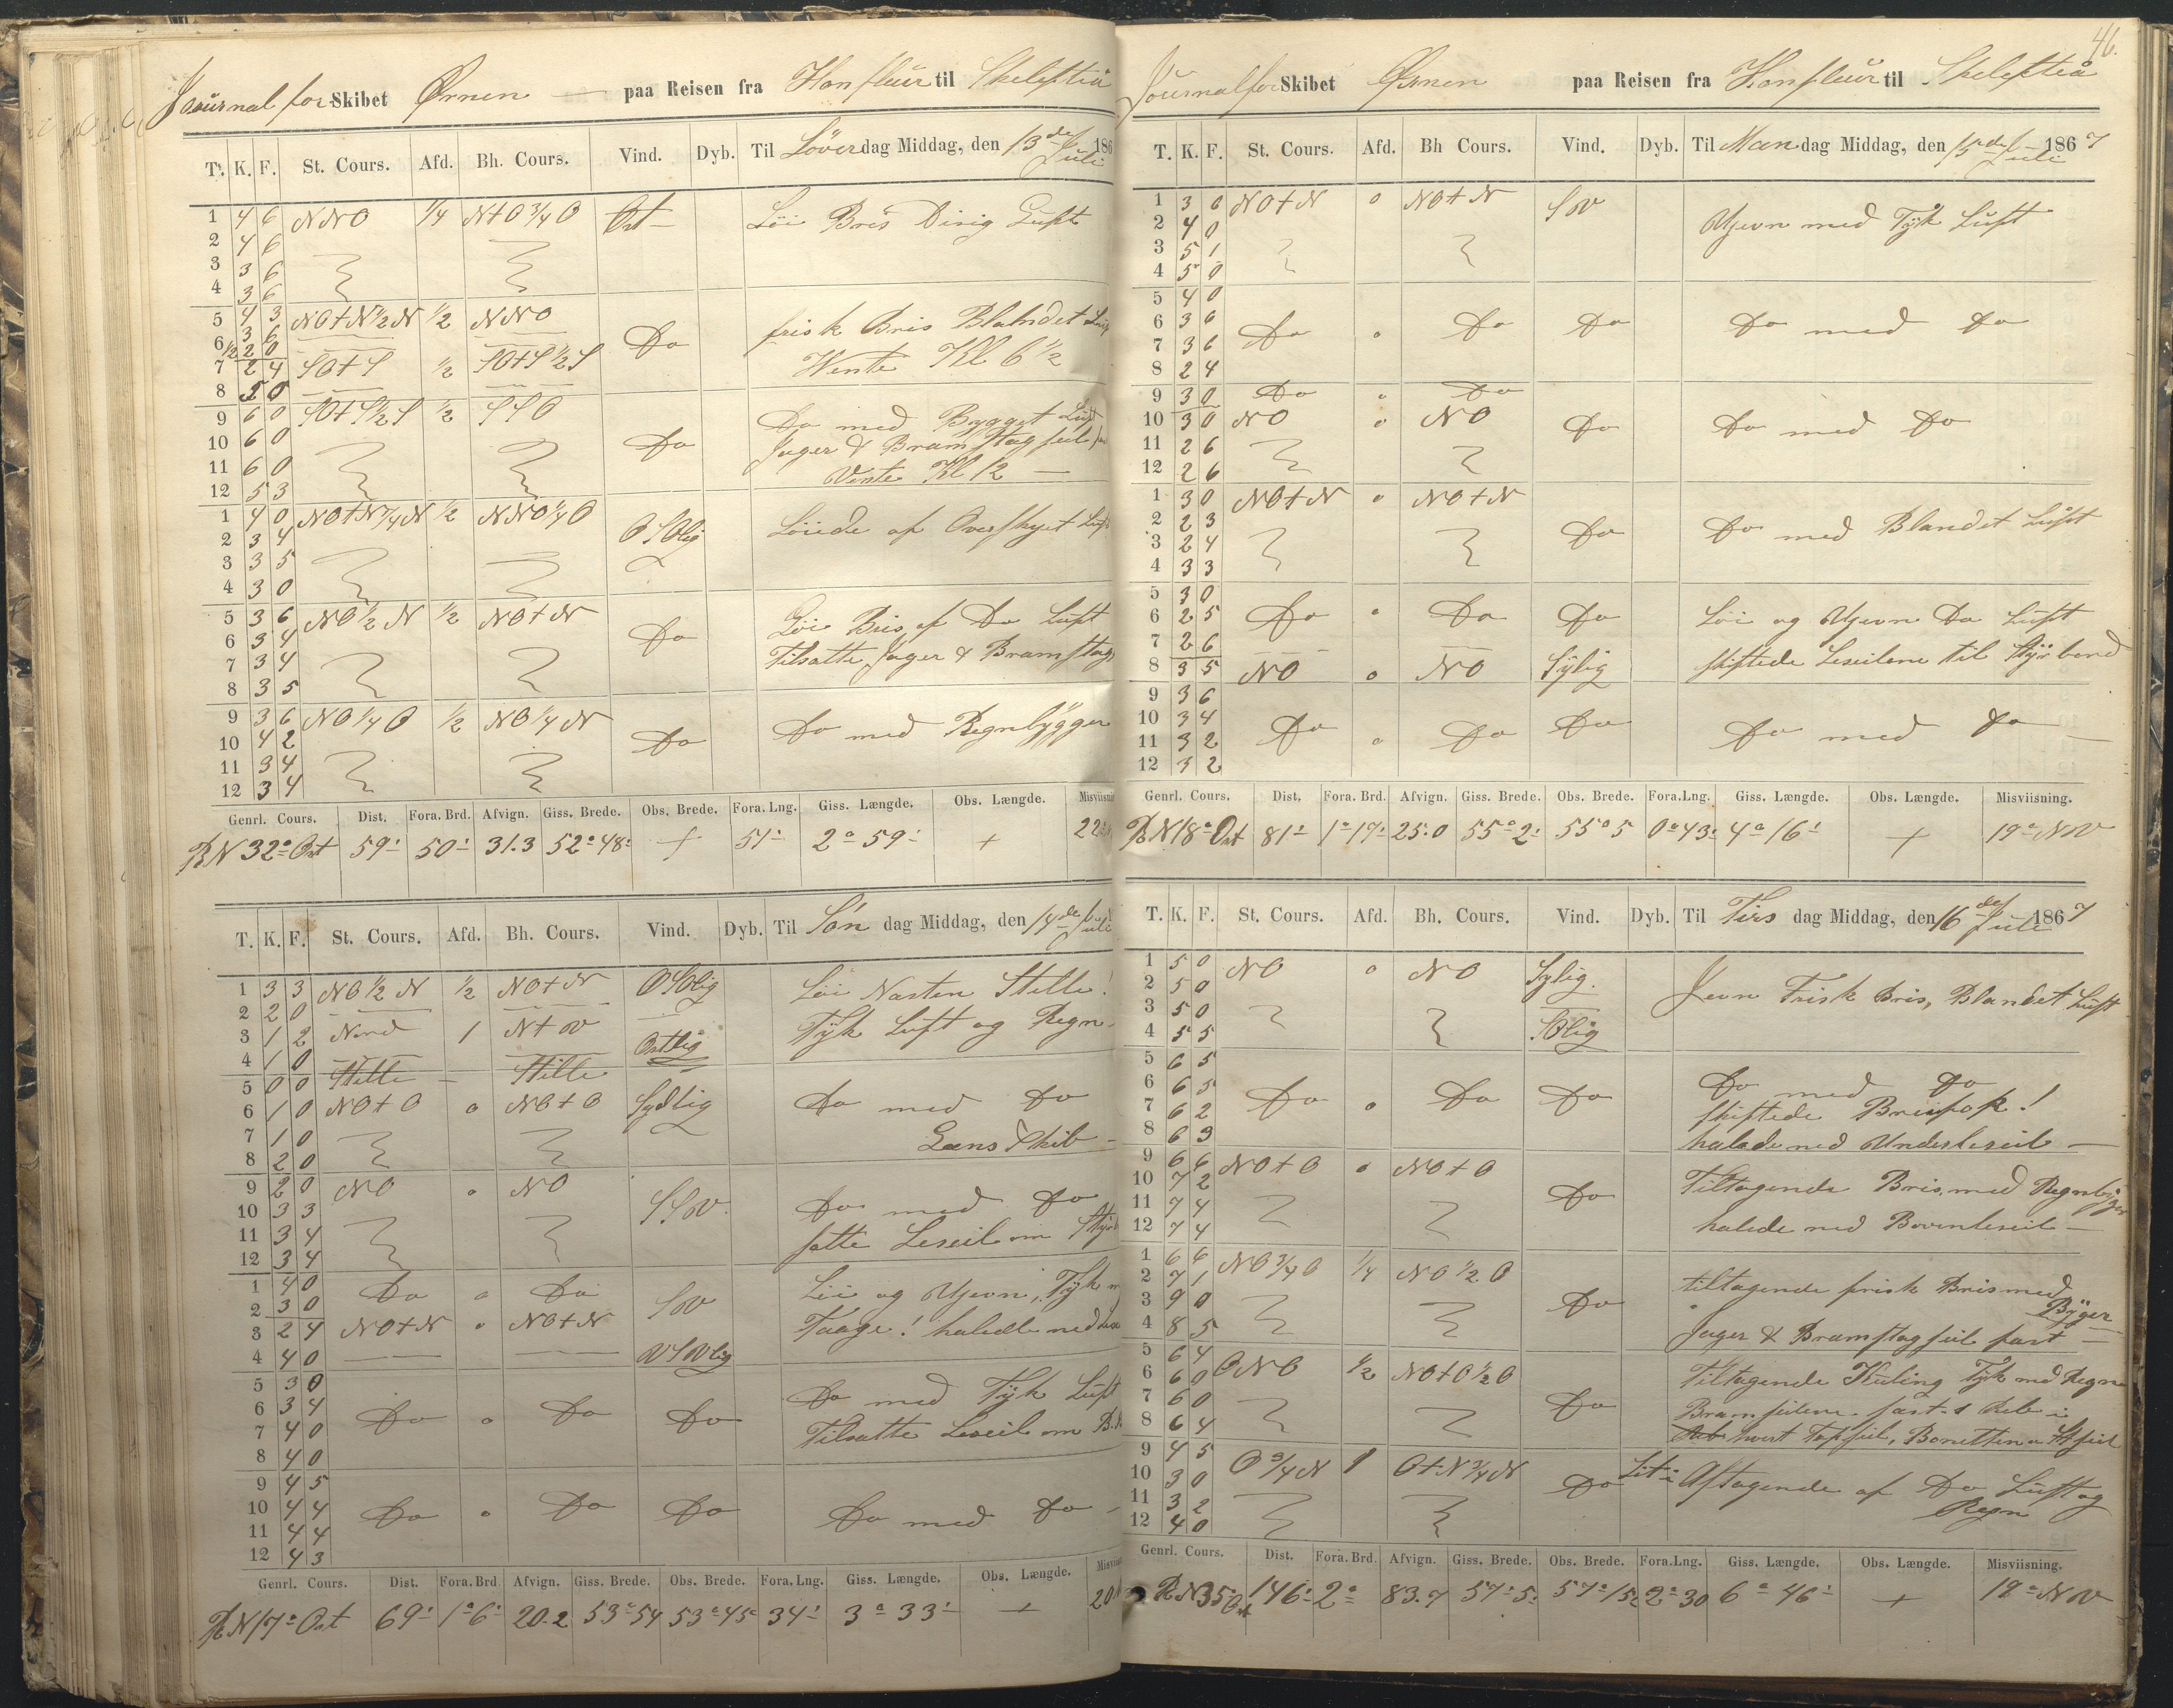 Journal for Skibet Ørnen paa Reisen fra Honfleur til Skelefteå
T. K. F. St. Cours. Afd. Bh. Cours. Vind. Dyb. Til Løverdag Middag, den 13de Juli 186
1 4 6 NNO 1/4 N+O 3/4 O Ost Löi Bris Disig Luft
2 4 6
3 3 6
4 3 6
5 4 3 NO+N 1/2 N 1/2 NNO Do frisk Bris Blandet
6 3 6
1/2 2 0
7 2 4 SO+S 1/2 SO+S 1/2 S Wente Kl 6 1/2
8 5 0
9 6 0 SO+S 1/2 S 1/2 SSO Do Do med Bygget Luft
10 6 0 Jager & Bramstagseil
11 6 0 Vente Kl 12
12 5 3
1 4 0 NO+N 1/4 N 1/2 NNO 1/4 O OSOlig Löiede af Overskyet
2 3 4
3 3 5
4 3 0
5 3 6 NO 1/2 N 1/2 NO+N Do Löi Bris af Do Luft
6 3 4 Tilsatte Jager & Bramstag
7 3 4
8 3 5
9 3 6 NO 1/4 O 1/2 NO 1/4 N Do Do med Regnbygger
10 4 2
11 3 4
12 3 4
Genrl. Cours. Dist. Fora. Brd. Afvign. Giss. Brede. Obs. Brede. Fora. Lng. Giss. Længde. Obs. Længde.
RN 32° Ost 59' 50' 31.3 52° 48' + 51' 2° 59' +
T. K. F. St. Cours. Afd. Bh. Cours. Vind. Dyb. Til Søn dag Middag, den 14de Juli
1 3 3 NO 1/2 N 1/2 NO+N OSOlig Löi Nasten Stille!
2 2 0
3 1 2 Nord 1 N+W Ostlig Tyk Luft og Regn
4 1 0
5 0 0 Stille - Stille
6 1 0 NO+O o NO+O Sydlig Do med Do
7 1 0 Læns Skib
8 2 0
9 2 0 NO o NO SSW Do med Do
10 3 3
11 3 4 satte Leseil om
12 3 4
1 4 0 Do o Do SW Löi og Ujevn, Tyk
2 3 0
3 2 4 NO+N o NO+N Taage! halede ned
4 4 0 WSWlig
5 3 0 Do med Tyk Luft
6 3 4 Do o Do Do
7 4 0 Tilsatte Leseil om
8 4 0
9 4 5
10 4 4 Do o Do Do Do med Do
11 4 4
12 4 3
Genrl. Cours. Dist. Fora. Brd. Afvign. Giss. Brede. Obs. Brede. Fora. Lng. Giss. Længde. Obs. Længde.
RN 17° Ost 69' 1° 6' 20.2 53° 54 53° 45' 34' 3° 33' +
46.
Journal for Skibet Ørnen paa Reisen fra Honfleur til Skelefteå
T. K. F. St. Cours. Afd. Bh Cours. Vind. Dyb. Til Mandag Middag, den 15de Juli 1867
1 3 6 NO+N o NO+N SW Ujevn med Tÿk Luft
2 4 0
3 5 1
4 5 0
5 4 0
6 3 6 Do o Do Do Do med Do
7 3 6
8 2 4
9 3 0 Do o Do
10 3 0 NO o NO Do Do med Do
11 2 6
12 2 6
1 3 0 NO+N o NO+N
2 2 3 Do Do med Blandet Luft
3 2 4
4 3 3
5 3 0
6 2 5 Do o Do Do Löi og Ujevn Do Luft
7 2 6 skiftede Leseilene til Styrbord
8 3 5 NO o NO Sÿlig
9 3 6
10 3 4 Do o Do Do Do med Do
11 3 2
12 3 2
Genrl. Cours. Dist. Fora. Brd. Afvign. Giss. Brede. Obs. Brede. Fora.Lng. Giss. Længde. Obs. Længde. Misviisning.
RN 18° Ost 81' 1° 17' 25.0 55° 2' 55° 5 0° 43' 4° 16' + 19° NW
T. K. F. St. Cours. Afd. Bh. Cours. Vind. Dyb. Til Tirs dag Middag, den 16de Juli 1867
1 5 0 NO o NO Sylig. Jevn Frisk Bris, Blandet Luft
2 5 0
3 5 0
4 5 5 SOlig
5 6 5
6 6 5 Do o Do Do Do med Do
7 6 2 skiftede
8 6 3 halede ned Underleseil
9 6 6 NO+O o NO+O Do Tiltagende Bris, med Regnbyger
10 7 2
11 7 4 halede ned Bovenleseil
12 7 4
1 6 6 NO 3/4 O 1/4 NO 1/2 O Do tiltagende frisk Bris med
2 7 1 Byger
3 9 0 Jager & Bramstagseil fast
4 8 5
5 6 4
6 6 0 ONO 1/2 NO+O 1/2 O Do Tiltagende Kuling Tyk med Regn
7 6 0 Bramseilene fast 1 Reb i
8 6 4 hvert Topseil, Bonetten a
9 4 5 O 3/4 N 1 O+N 3/4 N Do Aftagende af Do Luft og
10 3 0 Regn
11 3 2
12 4 0
Genrl. Cours. Dist. Fora. Brd. Afvign. Giss. Brede. Obs. Brede. Fora.Lng. Giss. Længde. Obs. Længde. Misviisning.
RN 35 Ost 146' 2° 83.7 57° 5' 57° 15' 2° 30 6° 46' + 19° NW